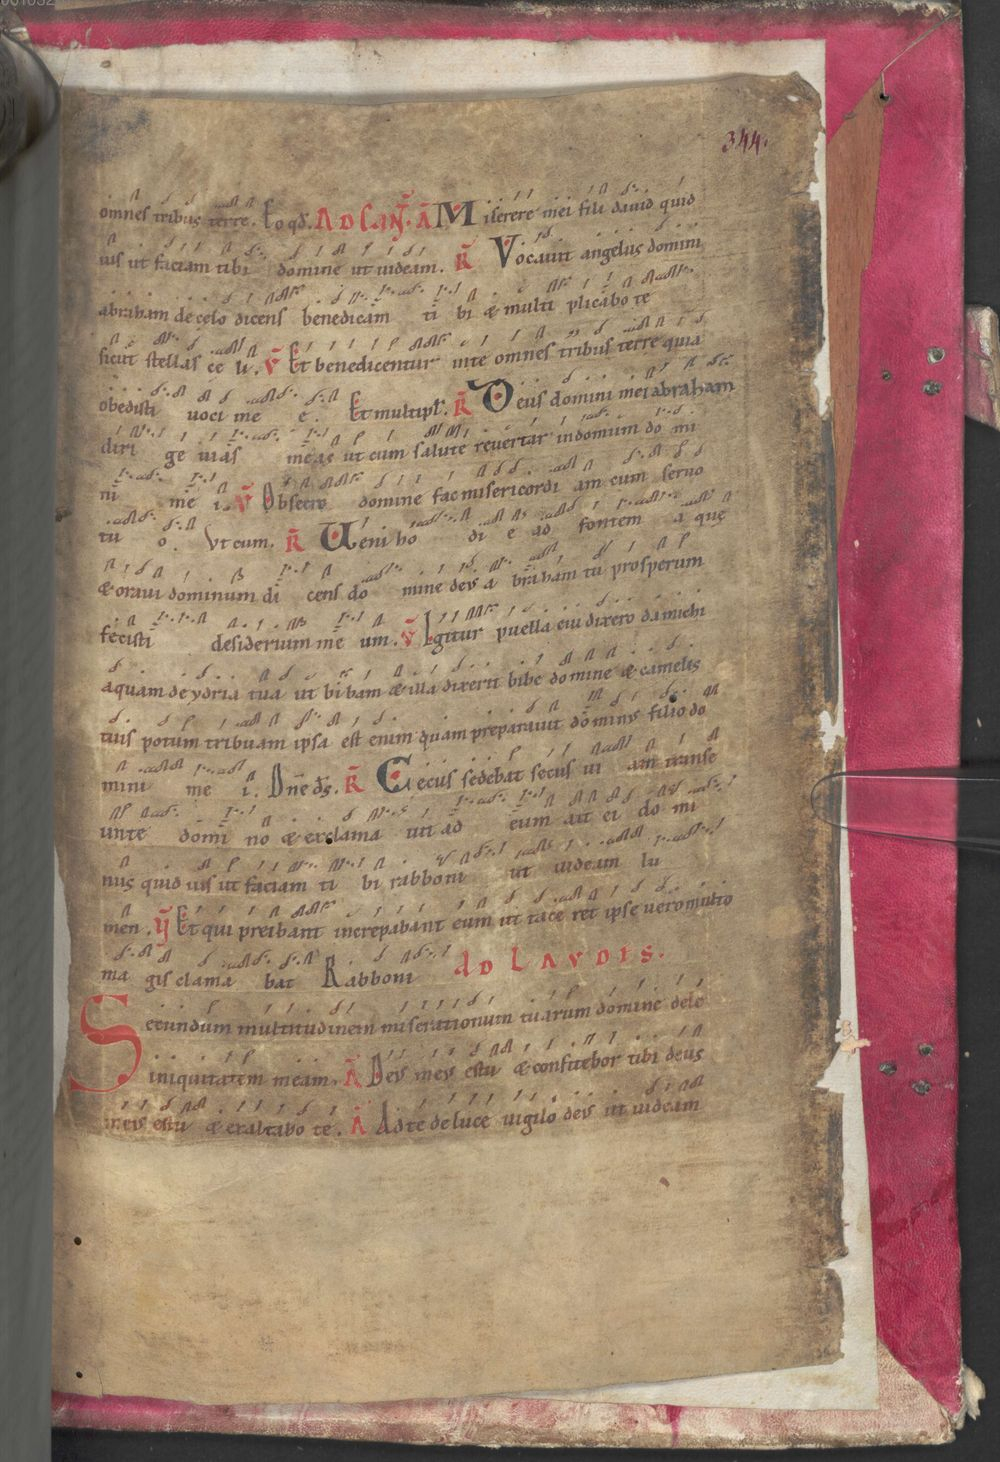 344.
omnes tribus terre. Eo qd. AD CANT. A Miserere mei fili dauid quid
uis ut faciam tibi domine ut uideam. R Vocauit angelus domini
abraham de celo dicens benedicam ti bi & multi plicabo te
sicut stellas ce li. V Et benedicentur inte omnes tribus terre quia
obedisti uoci me e. Et multipl. R Deus domini mei abraham
diri ge uias meas ut cum salute reuertar indomum do mi
ni me i. V Obsecro domine fac misericordi am cum seruo
tu o. Vt cum. R Ueni ho di e ad fontem a que
& oraui dominum di cens do mine deus a braham tu prosperum
fecisti desiderium me um. V Igitur puella cui dixero da michi
aquam de ydria tua ut bibam & illa dixerit bibe domine & camelis
tuis potum tribuam ipsa est enim quam preparauit dominus filio do
mini me i. Dne ds. R Cecus sedebat secus ui am transe
unte domi no & exclama uit ad eum ait ei do mi
nus quid uis ut faciam ti bi rabboni ut uideam lu
men. V Et qui preibant increpabant eum ut tace ret ipse uero multo
ma gis clama bat Rabboni AD LAVDIS.
Secundum multitudinem miserationum tuarum domine dele
iniquitatem meam. A Deus meus estu & confitebor tibi deus
meus estu & exaltabo te. A Ad te de luce uigilo deus ut uideam